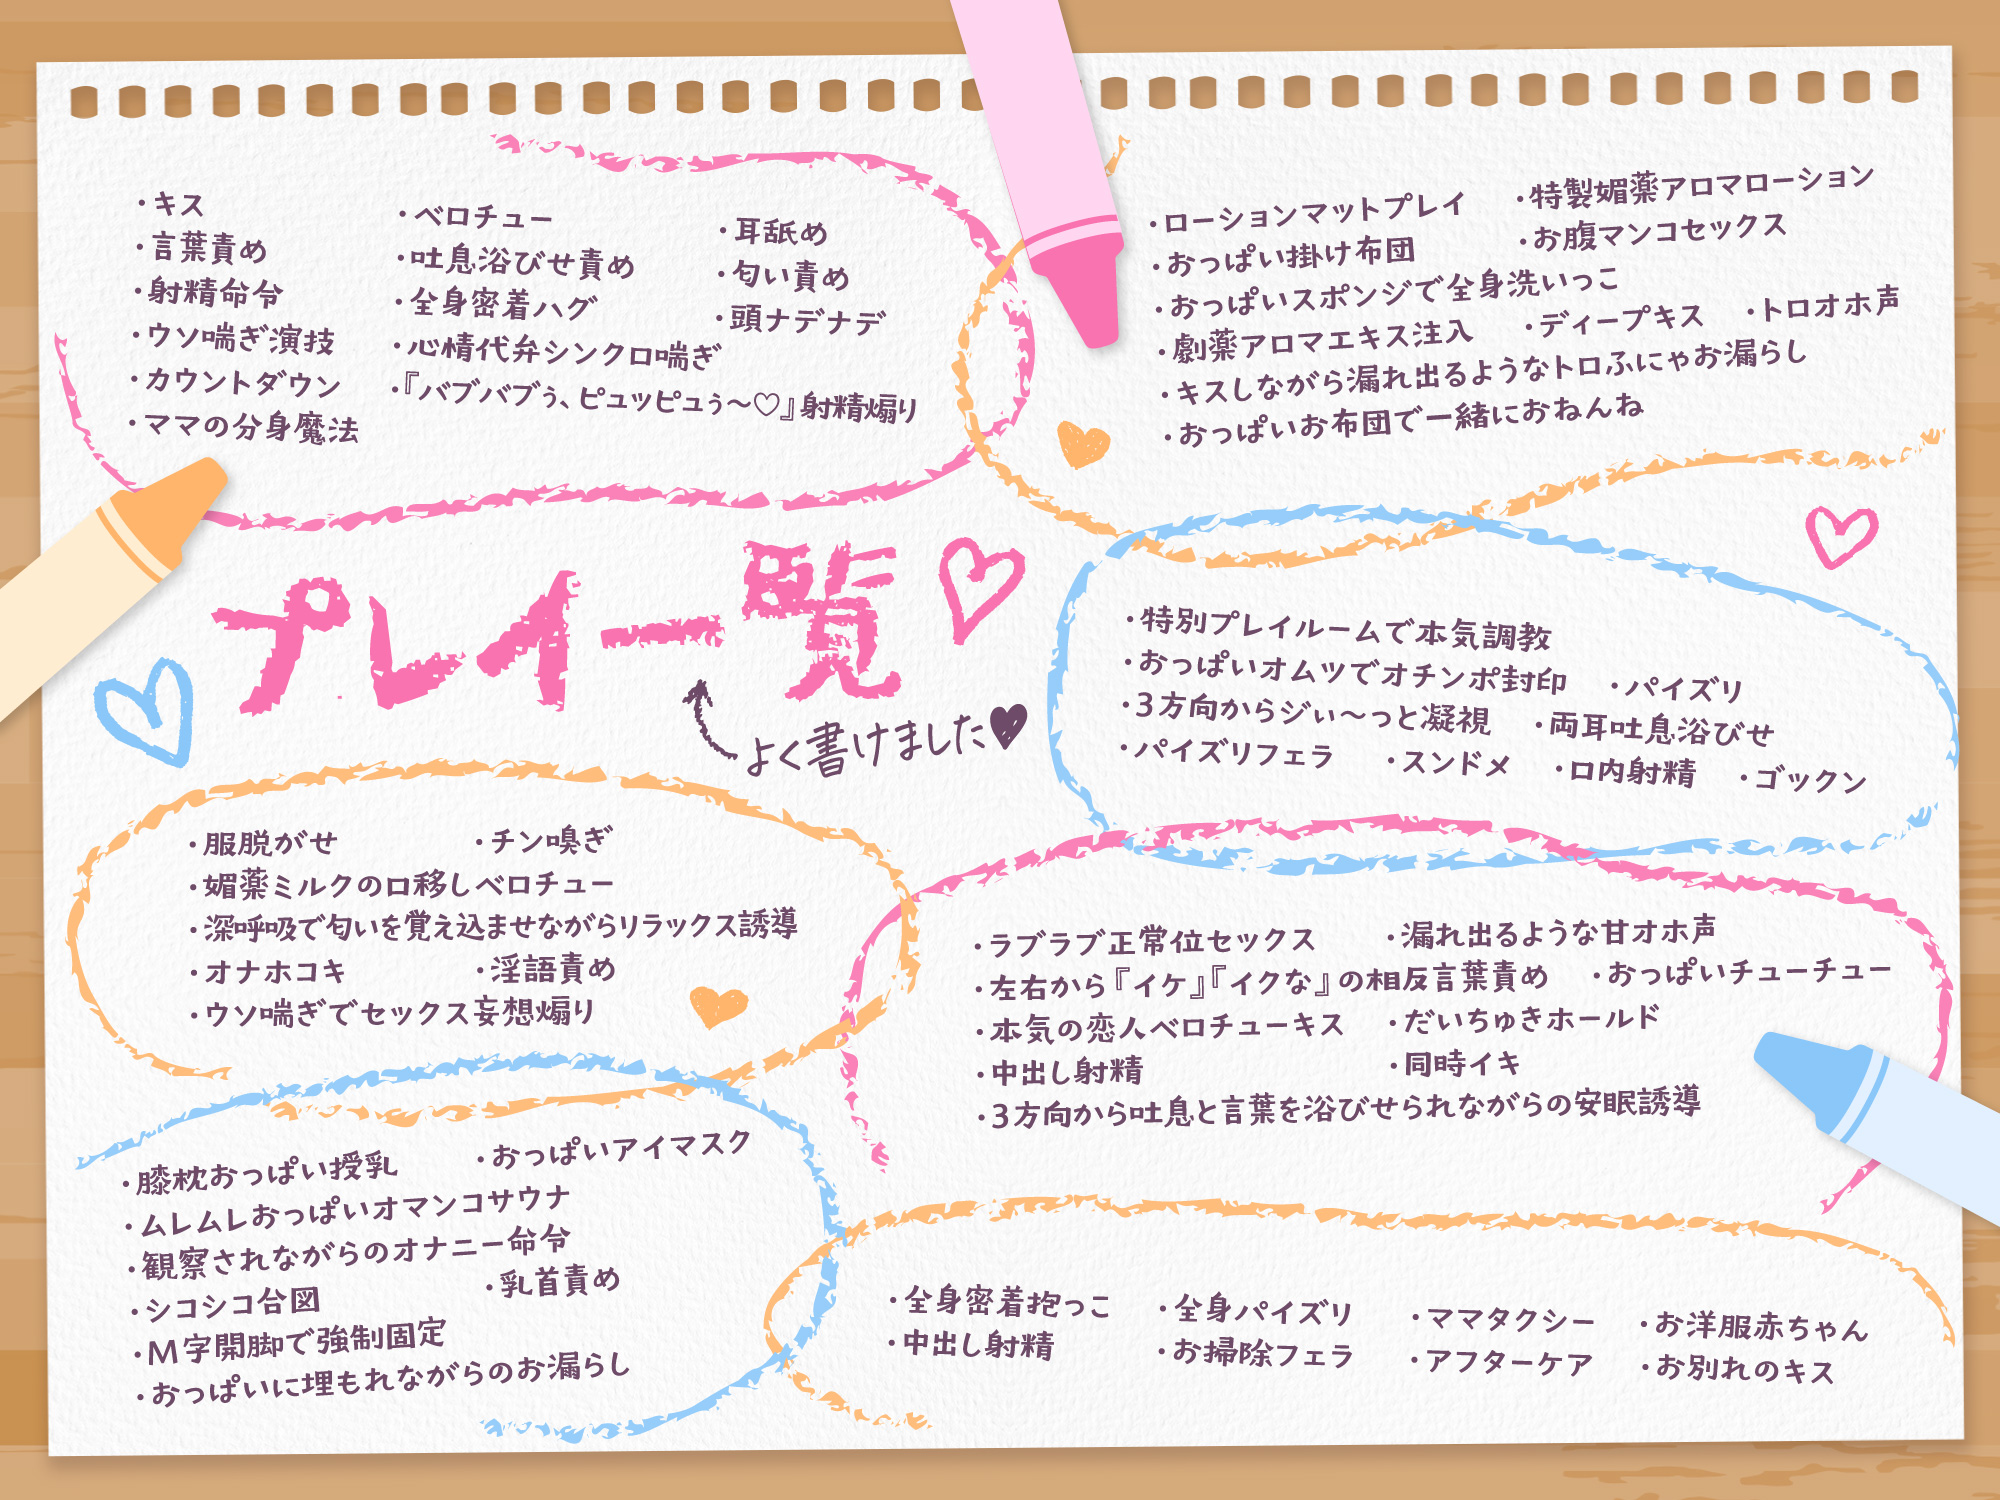 ・キス
・言葉責め
・射精命令
・ウソ喘ぎ演技
・カウントダウン
・ママの分身魔法
・ベロチュー
・吐息浴びせ責め
・全身密着ハグ
・心情代弁シンクロ喘ぎ
・『バブバブぅ、ピュッピュぅ～♡』射精煽り
・耳舐め
・匂い責め
・頭ナデナデ
・ローションマットプレイ ・特製媚薬アロマローション
・おっぱい掛け布団 ・お腹マンコセックス
・おっぱいスポンジで全身洗いっこ
・劇薬アロマエキス注入 ・ディープキス ・トロオホ声
・キスしながら漏れ出るようなトロふにゃお漏らし
・おっぱいお布団で一緒におねんね
プレイ一覧♡
よく書けました♥
・特別プレイルームで本気調教
・おっぱいオムツでオチンポ封印 ・パイズリ
・3方向からジぃ～っと凝視 ・両耳吐息浴びせ
・パイズリフェラ ・スンドメ ・口内射精 ・ゴックン
・服脱がせ ・チン嗅ぎ
・媚薬ミルクの口移しベロチュー
・深呼吸で匂いを覚え込ませながらリラックス誘導
・オナホコキ ・淫語責め
・ウソ喘ぎでセックス妄想煽り
・ラブラブ正常位セックス ・漏れ出るような甘オホ声
・左右から『イケ』『イクな』の相反言葉責め ・おっぱいチューチュー
・本気の恋人ベロチューキス ・だいちゅきホールド
・中出し射精 ・同時イキ
・3方向から吐息と言葉を浴びせられながらの安眠誘導
・膝枕おっぱい授乳 ・おっぱいアイマスク
・ムレムレおっぱいオマンコサウナ
・観察されながらのオナニー命令
・シコシコ合図 ・乳首責め
・M字開脚で強制固定
・おっぱいに埋もれながらのお漏らし
・全身密着抱っこ ・全身パイズリ ・ママタクシー ・お洋服赤ちゃん
・中出し射精 ・お掃除フェラ ・アフターケア ・お別れのキス